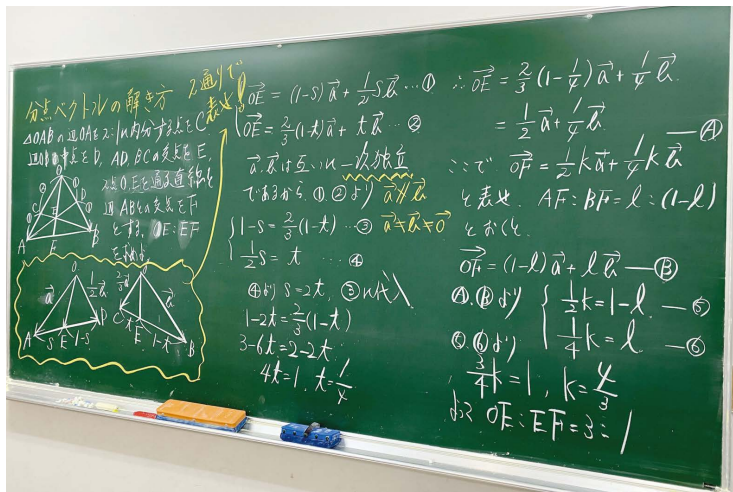 分点ベクトルの解き方
2通りで
表せ!
△OABの辺OAを2:1に内分する点をC
辺OBの中点をD, AD, BCの交点をE,
2点O,Eを通る直線と
辺ABとの交点をF
とする。OE:EF
を求めよ
O
A
B
F
O
a→
1/2 b→
A
D
S
E
1-S
2/3 a→
b→
C
t
E
1-t
B
OE→ = (1-S)a→ + 1/2 S b→ … ①
OE→ = 2/3 (1-t)a→ + t b→ … ②
a→, b→は互いに一次独立
であるから, ①, ②より a→∦b→
a→≠b→≠0→
1-S = 2/3 (1-t) … ③
1/2 S = t … ④
④より S=2t, ③に代入
1-2t = 2/3 (1-t)
3-6t = 2-2t
4t=1, t=1/4
∴ OE→ = 2/3 (1-1/4)a→ + 1/4 b→
= 1/2 a→ + 1/4 b→ —Ⓐ
ここで OF→ = 1/2 k a→ + 1/4 k b→
と表せ, AF:BF = l:(1-l)
とおくと
OF→ = (1-l)a→ + l b→ —Ⓑ
Ⓐ, Ⓑより
1/2 k = 1-l —⑤
1/4 k = l —⑥
⑤, ⑥より
3/4 k = 1, k = 4/3
よって OE:EF = 3:1